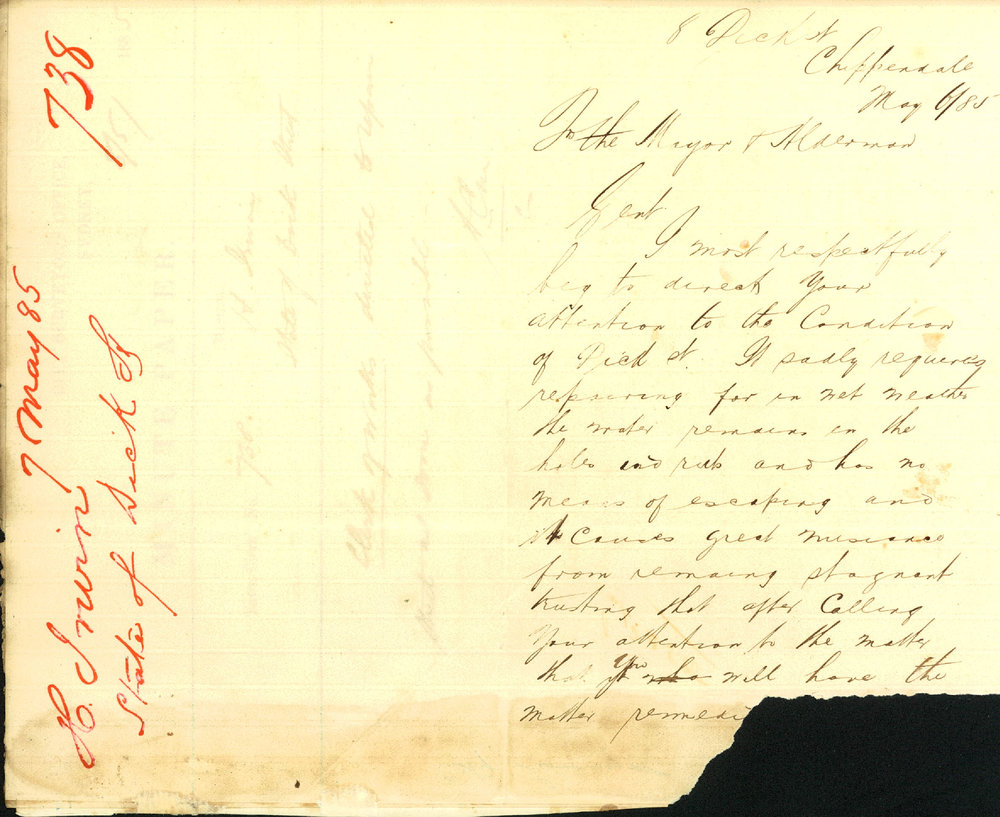 738
H. Irwin 7 May 85
State of Dick St
8 Dick St
Chippendale
May 6/85
To the Mayor & Alderman
Gent
I most respectfully
beg to direct your
attention to the Condition
of Dick St. It sadly requires
repairing for in wet weather
the water remains in the
holes and ruts and has no
means of escaping and
it Causes great nuisance
from remaing stagnant
trusting that after Calling
Your attention to the matter
that you will have the
matter remedi